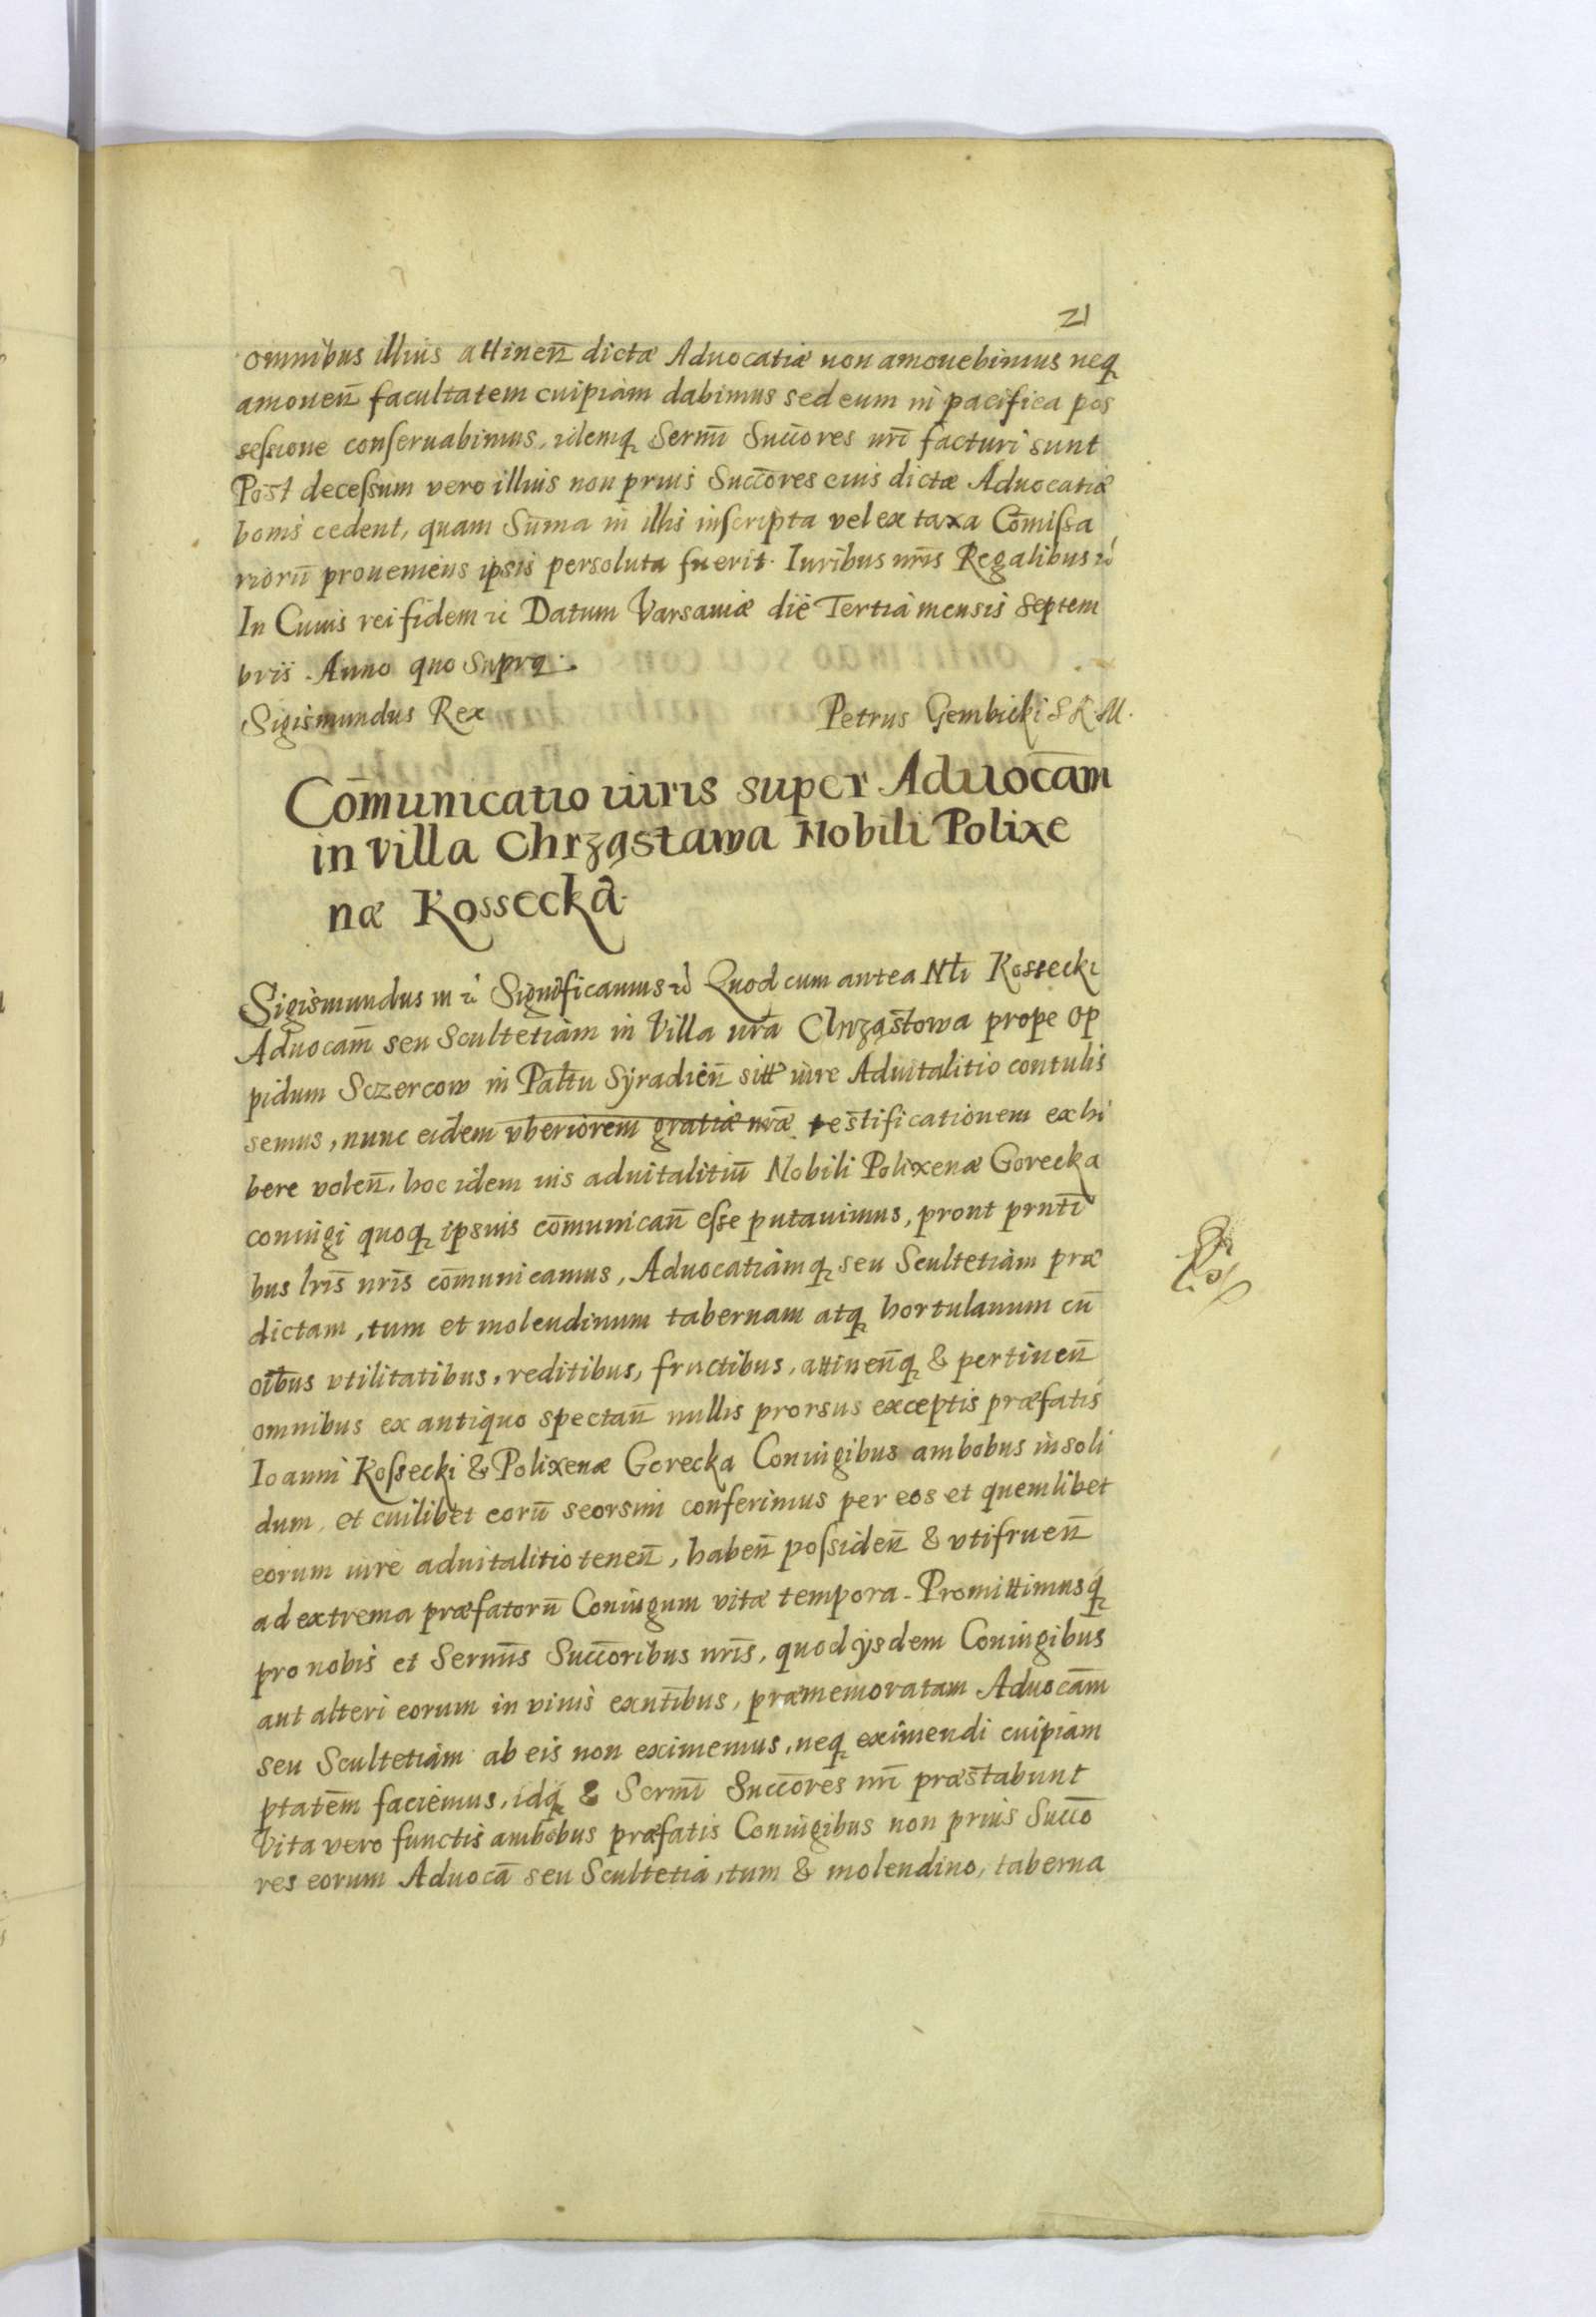 21
omnibus illius attineñ dictæ Aduocatiæ non amouebimus neq
amoueñ facultatem cuipiam dabimus sed eum in pacifica pos
seſsione conſeruabimus, idemq Sermi Succores nri facturi sunt
Post deceſsum vero illius non prius Succores eius dictæ Aduocatiæ
bonis cedent, quam Suma in illis inſcripta vel ex taxa Comiſsa
riorũ proueniens ipsis persoluta fuerit. Iuribus nris Regalibus rc
In Cuius rei fidem rc Datum Varsauiæ die Tertia mensis Septem
bris. Anno quo Supra.
Sigismundus Rex
Petrus Gembicki S R M.
Cōmunicatio iuris super Aduocam
in villa Chrząstawa Nobili Polixe
næ Kossecka
Sigismundus III rc Significamus rc Quod cum antea Nli Kossecki
Aduocam̃ seu Scultetiam in Villa nra Chrząstowa prope op
pidum Sczercow in Paltu Syradieñ sitt iure Aduitalitio contulis
semus, nunc eidem vberiorem gratiæ nræ testificationem exhi
bere voleñ, hoc idem ius aduitalitiũ Nobili Polixenæ Gorecka
coniugi quoq ipsius cōmunicañ eſse putauimus, prout prnti
bus lris nris cōmunicamus, Aduocatiamq seu Scultetiam præ
dictam, tum et molendinum tabernam atq hortulanum cũ
oibus vtilitatibus, reditibus, fructibus, attineñq & pertineñ
omnibus ex antiquo spectañ nullis prorsus exceptis præfatis
Ioanni Koſsecki & Polixenæ Gorecka Coniugibus ambobus in soli
dum, et cuilibet eorũ seorsim conferimus per eos et quemlibet
eorum iure aduitalitio teneñ, habeñ poſsideñ & vtifrueñ
ad extrema præfatorũ Coniugum vitæ tempora. Promittimusq
pro nobis et Sermis Succoribus nris, quod ijsdem Coniugibus
aut alteri eorum in viuis exntibus, præmemoratam Aduocam
seu Scultetiam ab eis non eximemus, neq eximendi cuipiam
ptatem faciemus, idq & Sermi Succores nri præstabunt
Vita vero functis ambobus præfatis Coniugibus non prius Succo
res eorum Aduoca seu Scultetia, tum & molendino, taberna